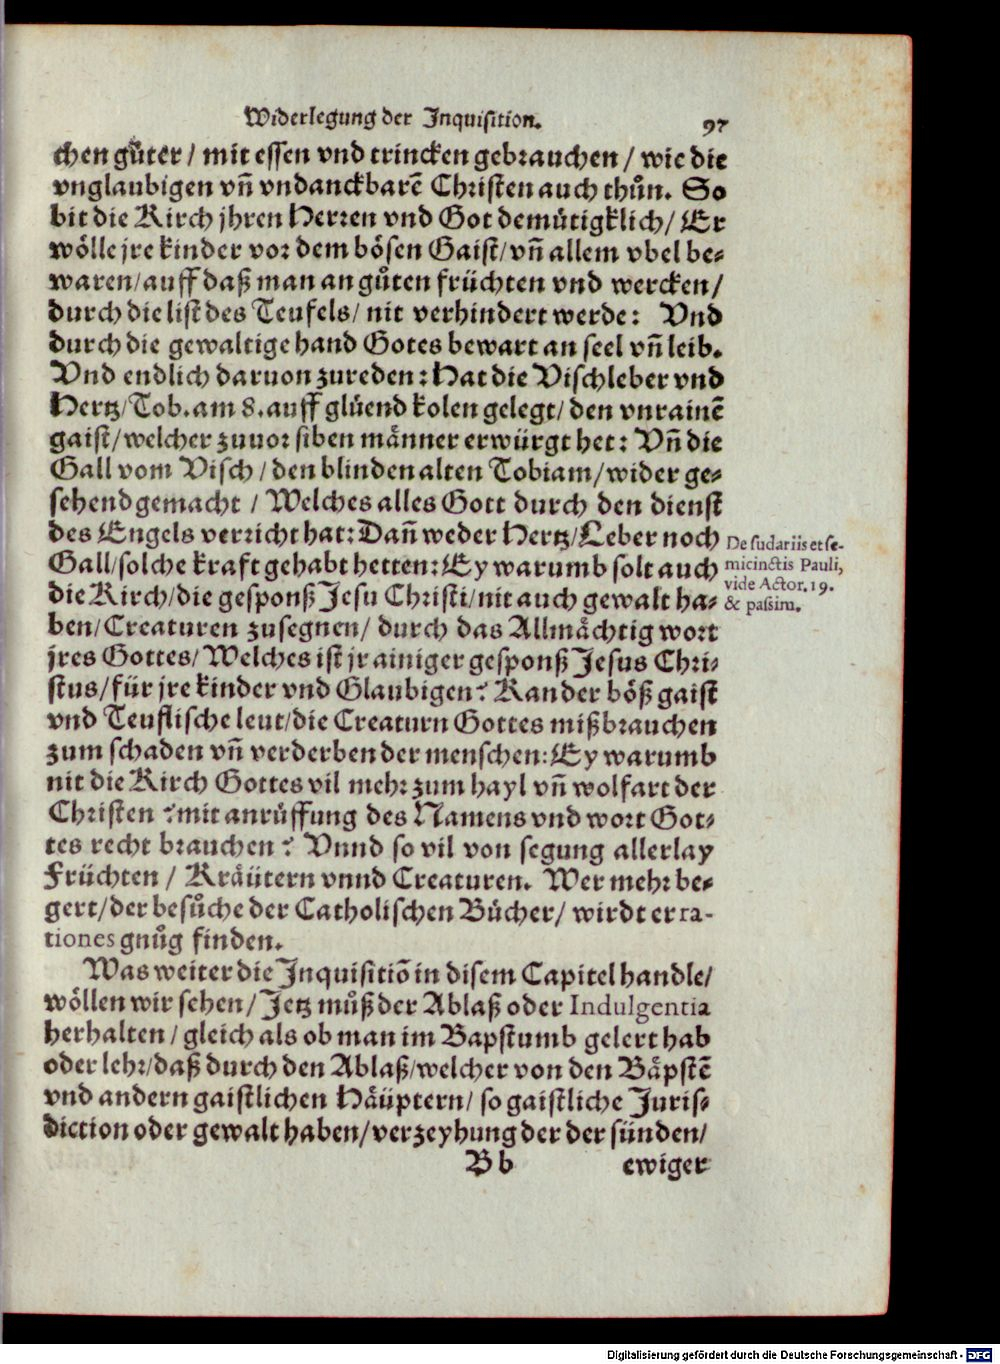 Widerlegung der Inquisition. 97
chen gůter / mit essen vnd trincken gebrauchen / wie die
vnglaubigen vñ vndanckbarē Christen auch thůn. So
bit die Kirch jhren Herren vnd Got demůtigklich / Er
wölle jre kinder vor dem bösen Gaist / vñ allem vbel be-
waren / auff daß man an gůten früchten vnd wercken /
durch die list des Teufels / nit verhindert werde: Vnd
durch die gewaltige hand Gotes bewart an seel vñ leib.
Vnd endlich daruon zureden: Hat die Vischleber vnd
Hertz / Tob. am 8. auff glüend kolen gelegt / den vnrainē
gaist / welcher zuuor siben männer erwürgt het: Vñ die
Gall vom Visch / den blinden alten Tobiam / wider ge-
sehend gemacht / Welches alles Gott durch den dienst
des Engels verricht hat: Dañ weder Hertz / Leber noch
Gall / solche kraft gehabt hetten: Ey warumb solt auch
die Kirch / die gesponß Jesu Christi / nit auch gewalt ha-
ben / Creaturen zusegnen / durch das Allmächtig wort
jres Gottes / Welches ist jr ainiger gesponß Jesus Chri-
stus / für jre kinder vnd Glaubigen? Kan der böß gaist
vnd Teuflische leut / die Creaturn Gottes mißbrauchen
zum schaden vñ verderben der menschen: Ey warumb
nit die Kirch Gottes vil mehr zum hayl vñ wolfart der
Christen ? mit anrůffung des Namens vnd wort Got-
tes recht brauchen ? Vnnd so vil von segung allerlay
Früchten / Kräütern vnnd Creaturen. Wer mehr be-
gert / der besůche der Catholischen Bücher / wirdt er ra-
tiones gnůg finden.
Was weiter die Inquisitiō in disem Capitel handle /
wöllen wir sehen / Jetz můß der Ablaß oder Indulgentia
herhalten / gleich als ob man im Bapstumb gelert hab
oder lehr / daß durch den Ablaß / welcher von den Bäpstē
vnd andern gaistlichen Häüptern / so gaistliche Juris-
diction oder gewalt haben / verzeyhung der der sünden /
B b ewiger
De sudariis et se-
micinctis Pauli,
vide Actor. 19.
& passim.
Digitalisierung gefördert durch die Deutsche Forschungsgemeinschaft - DFG